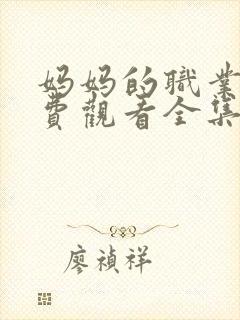 妈妈的職業
費觀看全集
廖禎祥